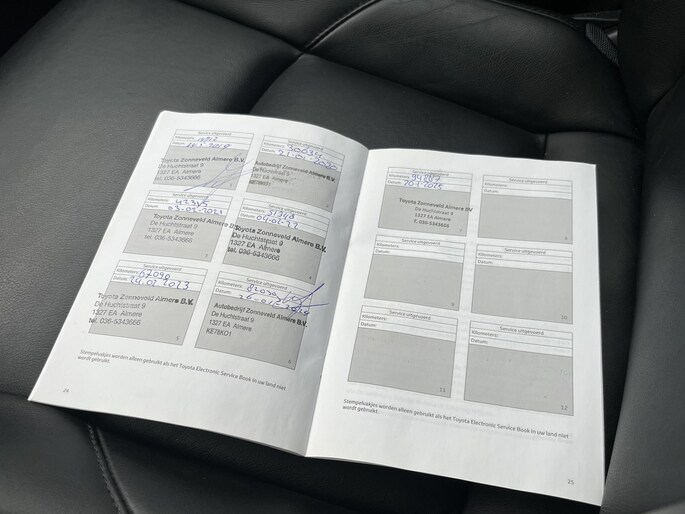 Service uitgevoerd
Kilometers:
Datum:
Toyota Zonneveld Almere B.V.
De Huchtstraat 9
1327 EA Almere
tel. 036-5343666
Service uitgevoerd
30034
Autobedrijf Zonneveld Almere
De Huchtstraat 9
1327 EA Almere
KE78KO1
Service uitgevoerd
Kilometers:
Datum: 03-02-2021
Toyota Zonneveld Almere B.V.
De Huchtstraat 9
1327 EA Almere
tel. 036-5343666
Service uitgevoerd
Toyota Zonneveld Almere B.V.
De Huchtstraat 9
1327 EA Almere
tel. 036-5343666
4
Service uitgevoerd
Kilometers: 67090
Datum: 24.02.2023
Toyota Zonneveld Almere B.V.
De Huchtstraat 9
1327 EA Almere
tel. 036-5343666
5
Service uitgevoerd
Kilometers:
Datum:
Autobedrijf Zonneveld Almere B.V.
De Huchtstraat 9
1327 EA Almere
KE78KO1
6
Stempelvakjes worden alleen gebruikt als het Toyota Electronic Service Book in uw land niet
wordt gebruikt.
24
Service uitgevoerd
Kilometers:
Datum:
Toyota Zonneveld Almere BV
De Huchtstraat 9
1327 EA Almere
t. 036-5343666
7
Service uitgevoerd
Kilometers:
Datum:
8
Service uitgevoerd
Kilometers:
Datum:
9
Service uitgevoerd
Kilometers:
Datum:
10
Service uitgevoerd
Kilometers:
Datum:
11
Service uitgevoerd
Kilometers:
Datum:
12
Stempelvakjes worden alleen gebruikt als het Toyota Electronic Service Book in uw land niet
wordt gebruikt.
25